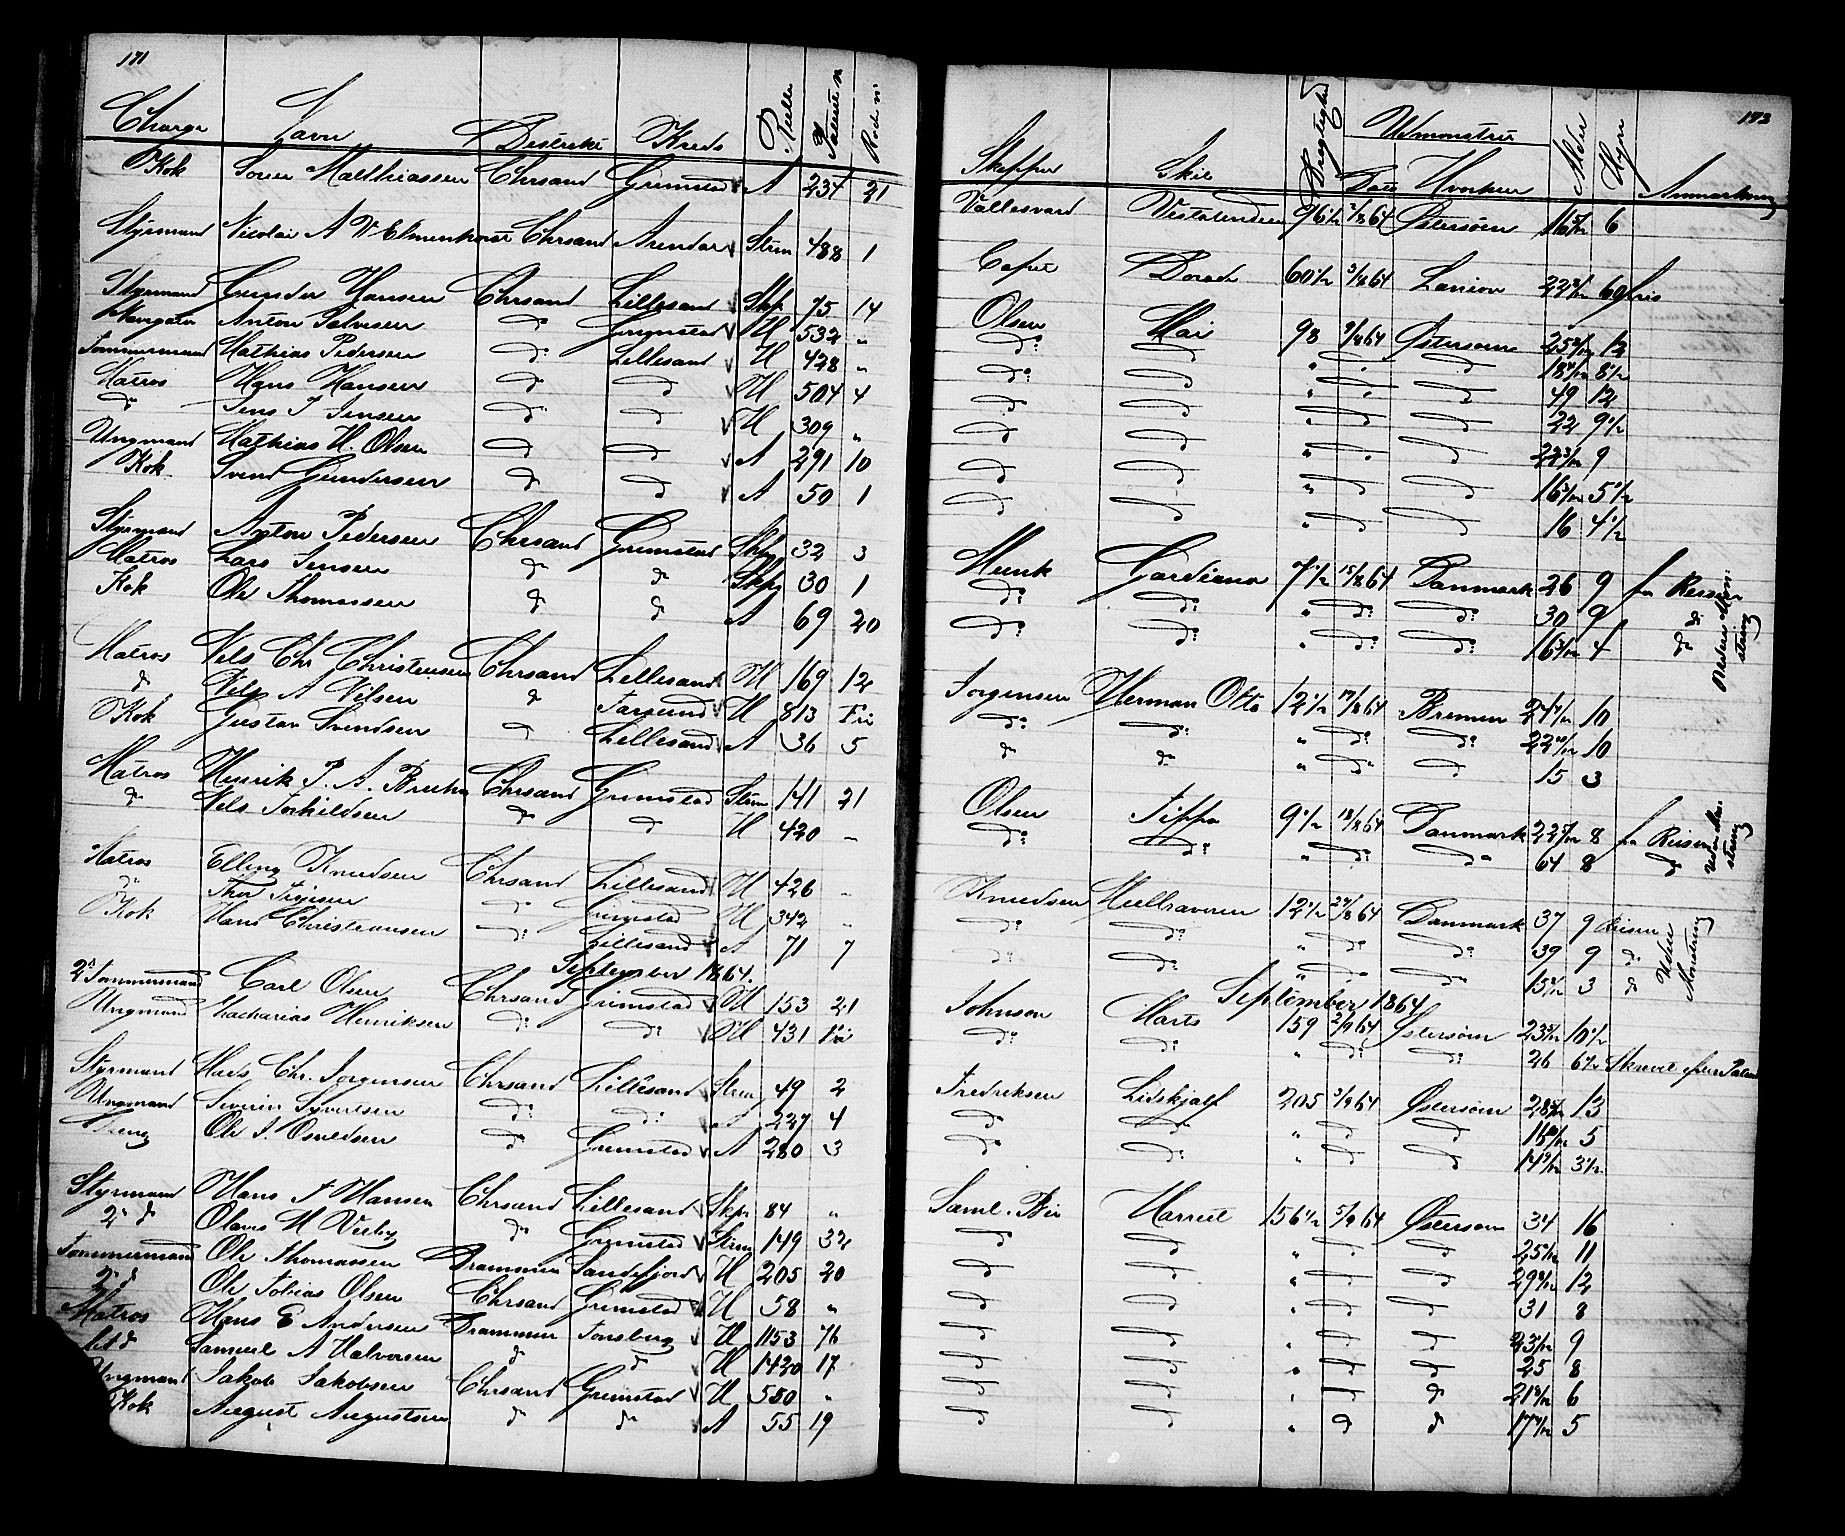 171
Charge Navn District Kreds Rulle Patent n Rode n:
Kok Soren Matthiassen Chrsand Grimstad A 234 21
Styrmand Nicolai A V Elmenhorst Chrsand Arendal Strm 488 1
Styrmand Gunder Hansen Chrsand Lillesand Skp 75 14
Navigatør Anton Salvesen do Grimstad U 532 "
Tømmermand Mathias Pedersen do Lillesand U 428 "
Matros Hans Hansen do do U 504 4
do Jens T Jensen do do U 309 "
Ungmand Mathias H. Olsen do do A 291 10
Kok Svend Gundersen do do A 50 1
Styrmand Anton Pedersen Chrsand Grimstad Skp 32 3
Matros Lars Jensen do do Skp 30 1
Kok Ole Thomassen do do A 69 20
Matros Nels Chr Christensen Chrsand Lillesand U 169 12
do Nels A Nilsen do Farsund U 813 Fri
Kok Gustav Svendsen do Lillesand A 36 5
Matros Henrik P. A. Chrsand Grimstad Strm 141 21
do Nels Torkildsen do do U 420 -
Matros Elling Knudsen Chrsand Lillesand U 426 -
do Thos do Grimstad U 342 "
Kok Hans Christiansen do: Lillesand A 71 7
September 1864.
2n Tømmermand Carl Olsen Chrsand Grimstad U 153 21
Ungmand Zacharias Henriksen do: do: U 431 Fri
Styrmand Mads Chr. Jorgensen Chrsand Lillesand Strm 49 2
Ungmand Severin Syvertsen do: do: A 227 4
Dreng Ole J. Osuldsen do Grimstad A 280 3
Styrmand Hans F Hansen Chrsand Lillesand Skp 84 "
2n do Olaves M do Grimstad Strm 149 32
Tømmermand Ole Thomassen Drammen Sandefjord U 205 20
2n do Ole Tobias Olsen Chrsand Grimstad U 58 "
Matros Hans E Andersen Drammen Tonsberg U 1153 76
do Samuel A Halvorsen do do U 1420 17
Ungmand Jakob Jakobsen Chrsand Grimstad U 550 "
Kok August Augustsen do do A 55 19
172
Skipper Skib Drægtighed Udmonstret Dato Hvorhen Alder Hyre Anmærkning
Vallesværd Vestalinden 96 1/2 2/8 64 Østersøen 16 6
Capt Dorade 60 1/2 3/8 64 22 69 fris
Olsen Mai 98 9/8 64 Østersøen 25 12
do: do " " do 18 8 1/2
do: do " " do 49 12
do do " do do 22 9 1/2
do do " " do 22 9
do do " do do 16 5 1/2
do do " do do 16 4 1/2
Munk Gardiana 7 1/2 15/8 64 Danmark 26 9 for Reisen
do: do: " do: do: 30 9 do
do: do: " do: do: 16 4 do
Uden Mon: string
Jorgensen Herman Otto 12 1/2 17/8 64 Bremen 24 10
do: do: " do: do: 22 10
do do " do do 15 3
Olsen Jippo 9 1/2 18/8 64 Danmark 22 8 for Reisen
do: do: " do: do 64 8 do
Uden Mon string
Knudsen 12 1/2 24/8 64 Danmark 37 9 Reisen
do: do: " do: do: 39 9 do
do: do: " do: do: 15 3 do
Uden Monstring
September 1864
Johnson Marts 159 2/9 64 Østersøen 23 10 1/2
do: do: " do: do: 26 6 1/2 Skrevet efter Patent
Fredriksen Lidskjalf 205 3/9 64 Østersøen 28 13
do do: " do do 18 5
do do: " do do 14 3 1/2
Saml. Bie Harriet 156 1/2 5/9 64 Østersøen 34 16
do do " do do 25 11
do do " do do 29 12
do do " do do 31 8
do do " do do 23 9
do do " do do 25 8
do do " do do 21 6
do do " do do 17 5